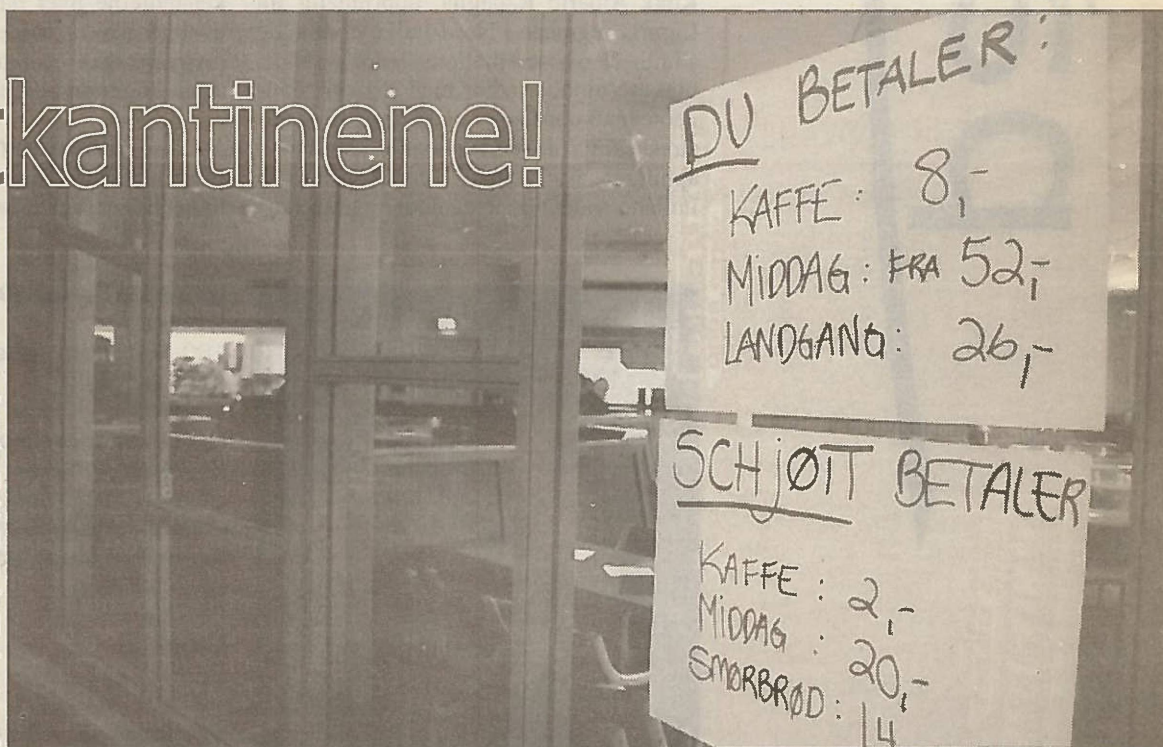 kantinene!
DU BETALER:
KAFFE: 8,-
MIDDAG: FRA 52,-
LANDGANG: 26,-
SCHJØTT BETALER
KAFFE: 2,-
MIDDAG: 20,-
SMØRBRØD: 14